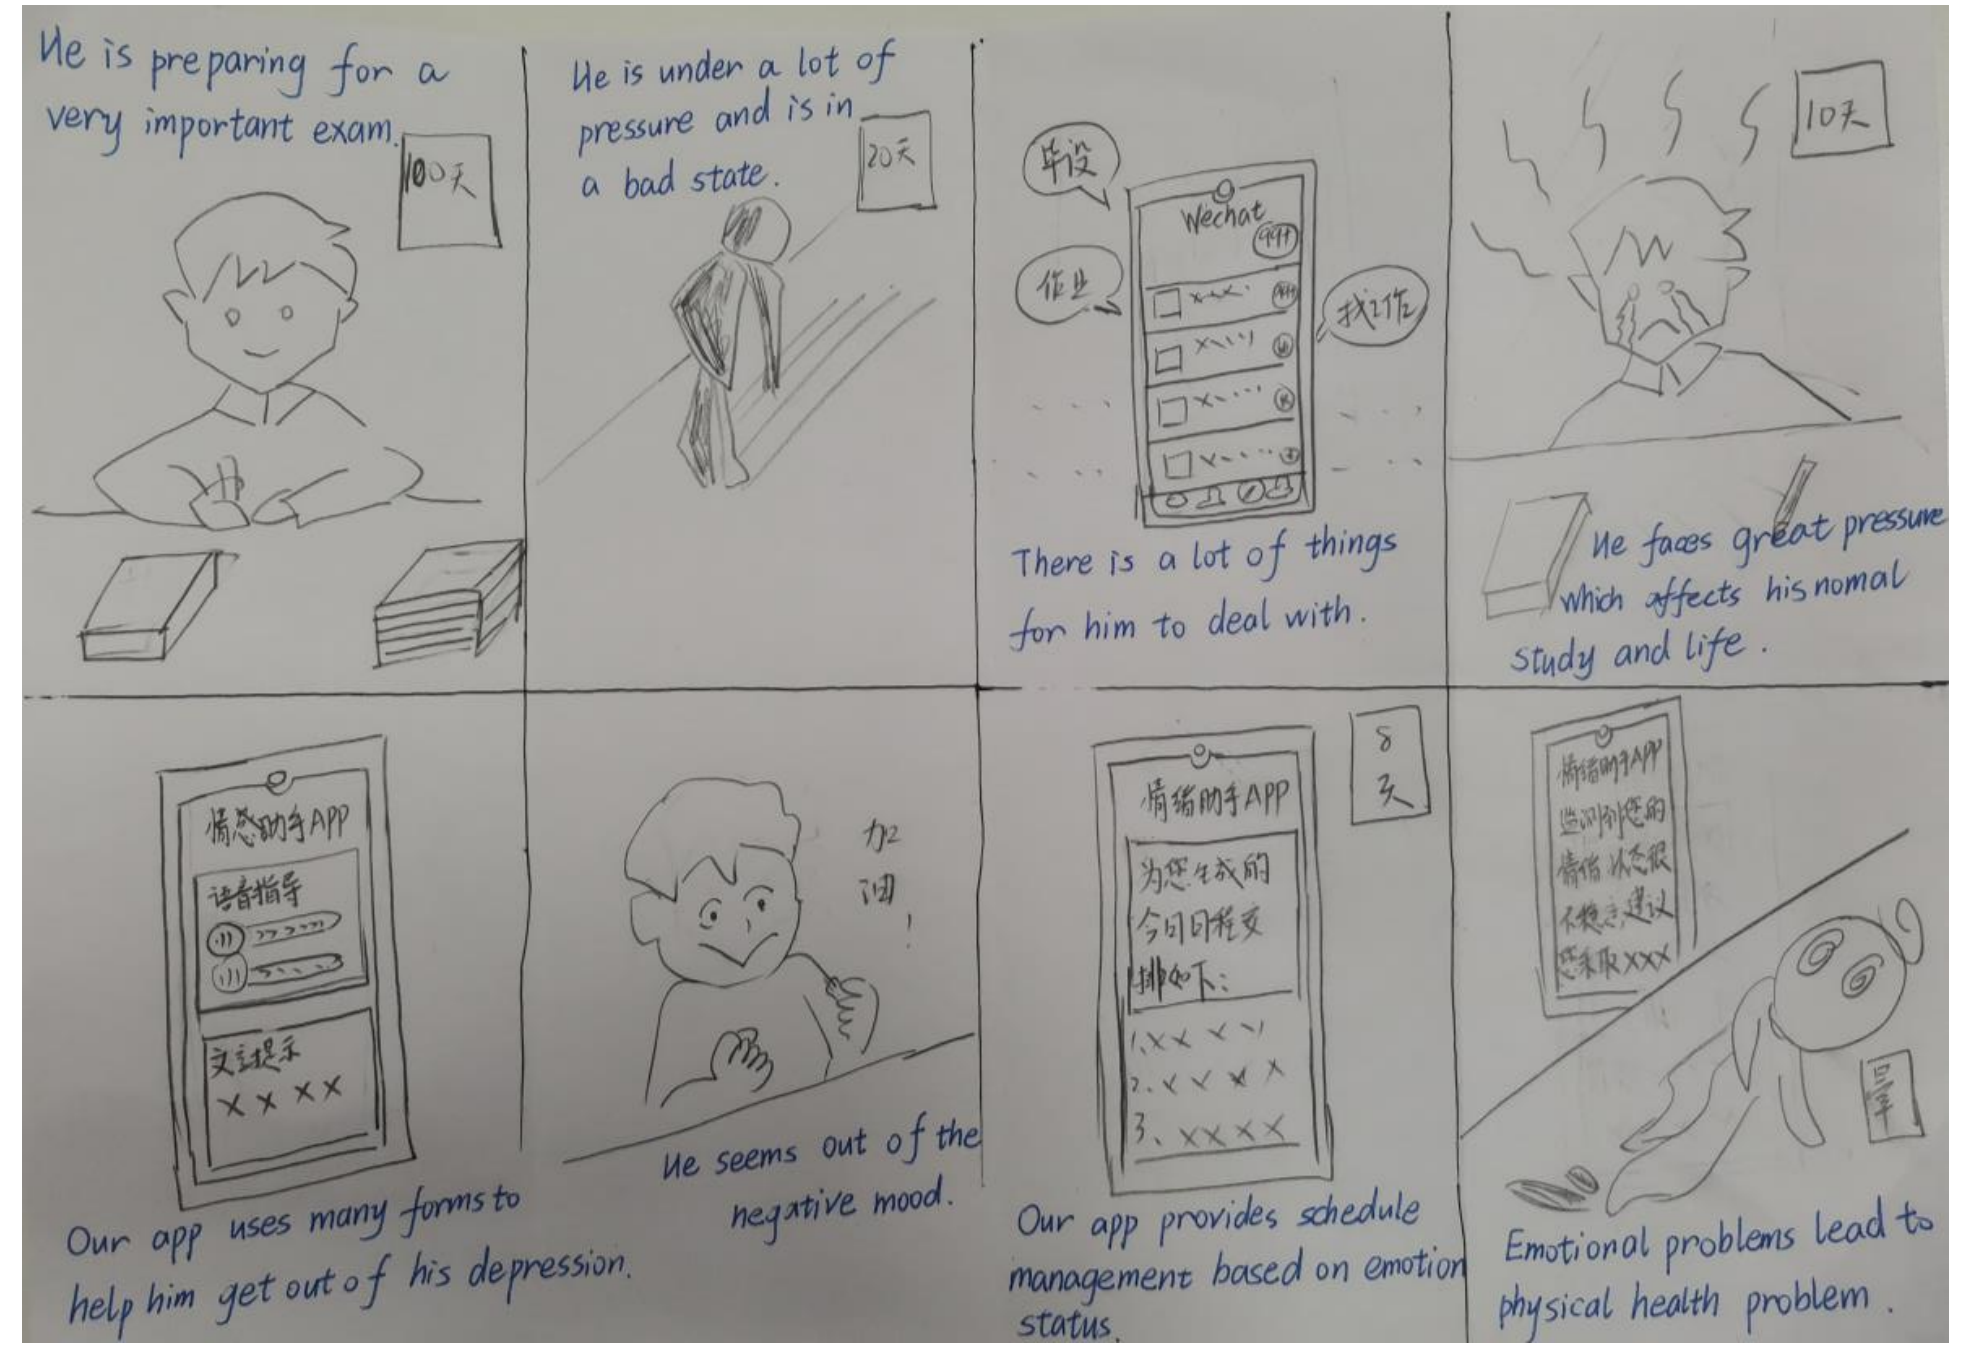 He is preparing for a
very important exam.
100天
He is under a lot of
pressure and is in
a bad state.
20天
毕设
作业
找工作
Wechat
99+
99+
There is a lot of things
for him to deal with.
10天
He faces great pressure
which affects his nomal
study and life.
情感助手APP
语音指导
文字提示
××××
Our app uses many forms to
help him get out of his depression.
加
油
!
He seems out of the
negative mood.
8
天
情绪助手APP
为您生成的
今日日程安
排如下:
1.××
2.××××
3、××××
Our app provides schedule
management based on emotion
status.
情绪助手APP
监测到您的
情绪状态很
不稳定,建议
您采取×××
Emotional problems lead to
physical health problem.